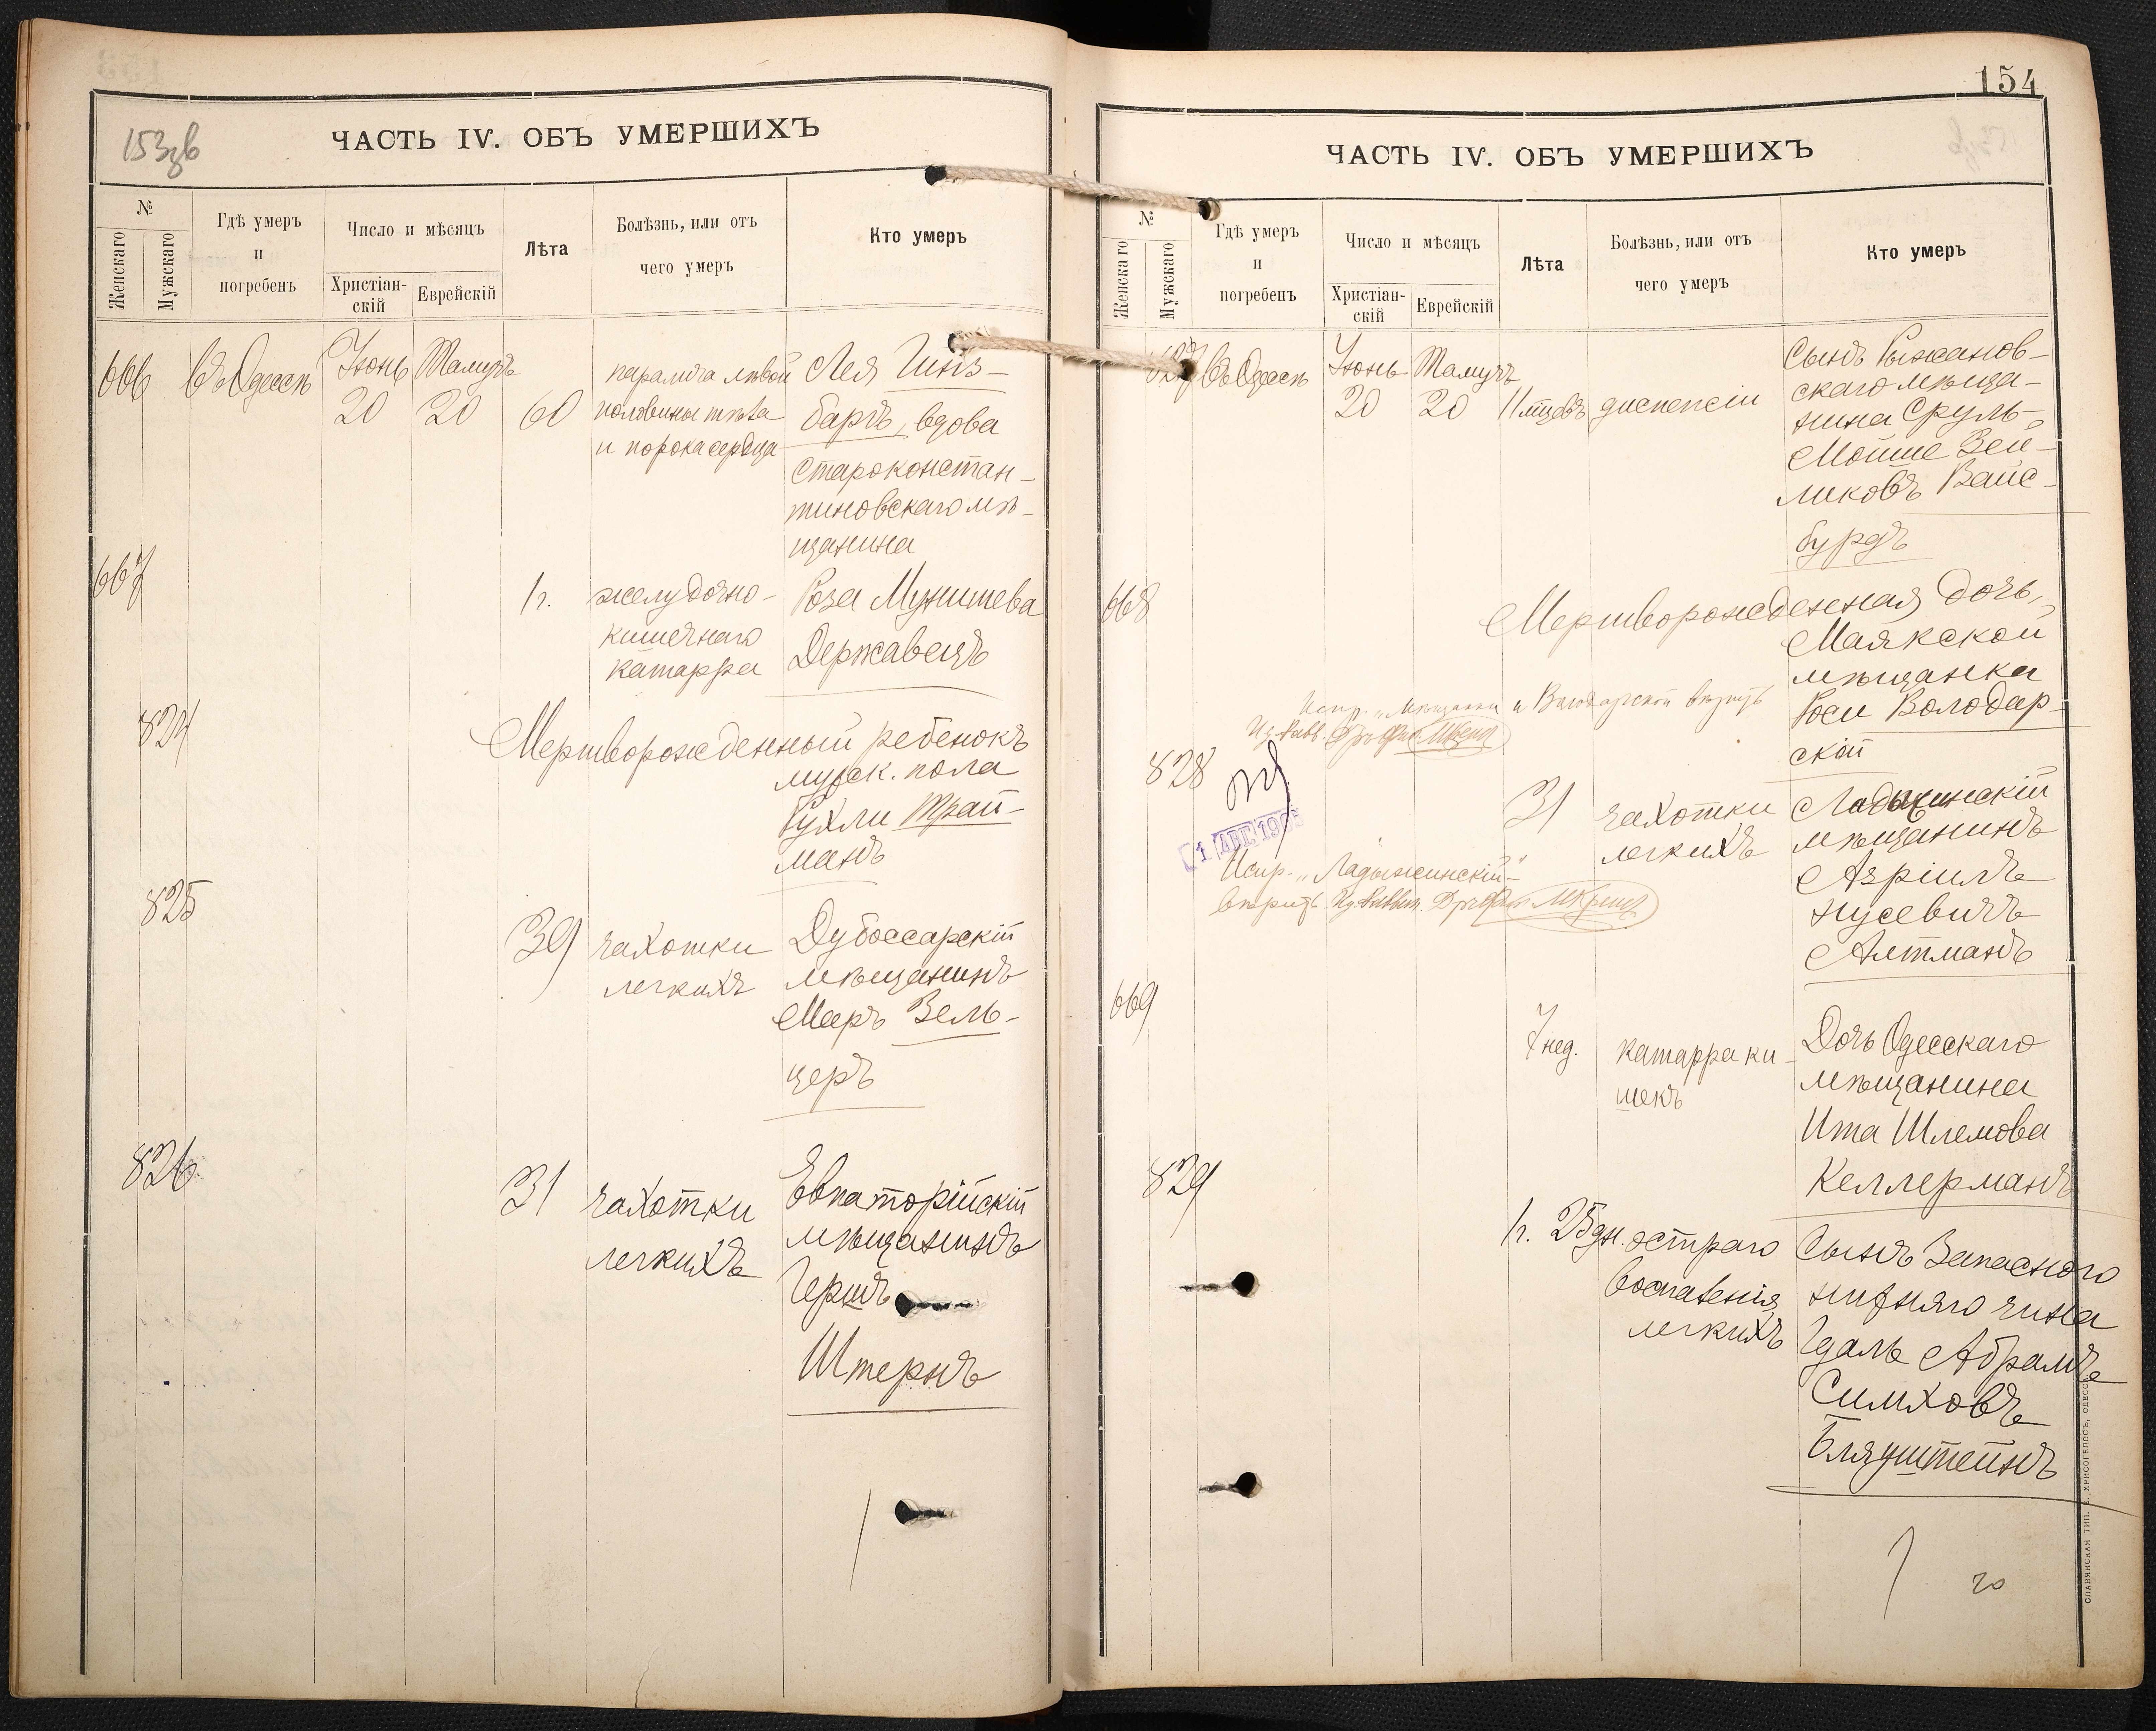 153зв
ЧАСТЬ IV. ОБЪ УМЕРШИХЪ
№
Женскаго
Мужскаго
Гдѣ умеръ
и
погребенъ
Число и мѣсяцъ
Христіан-
скій
Еврейскій
Лѣта
Болѣзнь, или отъ
чего умеръ
Кто умеръ
666 Въ Одессѣ Іюнь Тамузъ
20 20 60
паралича лѣвой
половины тѣла
и порока сердца
Лея Гинз-
баръ, вдова
староконстан-
тиновскаго мѣ-
щанина
667 1 г. желудочно-
кишечнаго
катарра
Роза Мунишева
Державецъ
824 Мертворожденный ребенокъ
мужск. пола
Рухли Трай-
манъ
825 39 чахотки
легкихъ
Дубоссарскій
мѣщанинъ
Меръ Зель-
церъ
826 31 чахотки
легкихъ
Евпаторійскій
мѣщанинъ
Гершъ
Штернъ
154
ЧАСТЬ IV. ОБЪ УМЕРШИХЪ
№
Женскаго
Мужскаго
Гдѣ умеръ
и
погребенъ
Число и мѣсяцъ
Христіан-
скій
Еврейскій
Лѣта
Болѣзнь, или отъ
чего умеръ
Кто умеръ
827 Въ Одессѣ Іюнь Тамузъ
20 20 11 мцовъ диспепсіи
Сынъ Рыжанов-
скаго мѣща-
нина Сруль-
Мойше Зей-
ликовъ Вайс-
бурдъ
668 Мертворожденная дочь,
Маякской
мѣщанка
Роси Володар-
скій
Испр. „Мѣщанки и Володарской вѣрно
828 31 чахотки
легкихъ
Ладыжинскій
мѣщанинъ
Азріилъ
Нусевичъ
Алтманъ
1 АВГ 1905
Испр. „Ладыжинскій"
вѣрно
669 7 нед. катарра ки-
шекъ
Дочь Одесскаго
мѣщанина
Ита Шлемова
Келлерманъ
829 1 г. 25 дн. остраго
воспаленія
легкихъ
Сынъ Запасного
нижняго чина
Гдаль Абрамъ
Симховъ
Бляуштейнъ
20
СЛАВЯНСКАЯ ТИП. Е. ХРИСОГЕЛОСЪ, ОДЕССА.